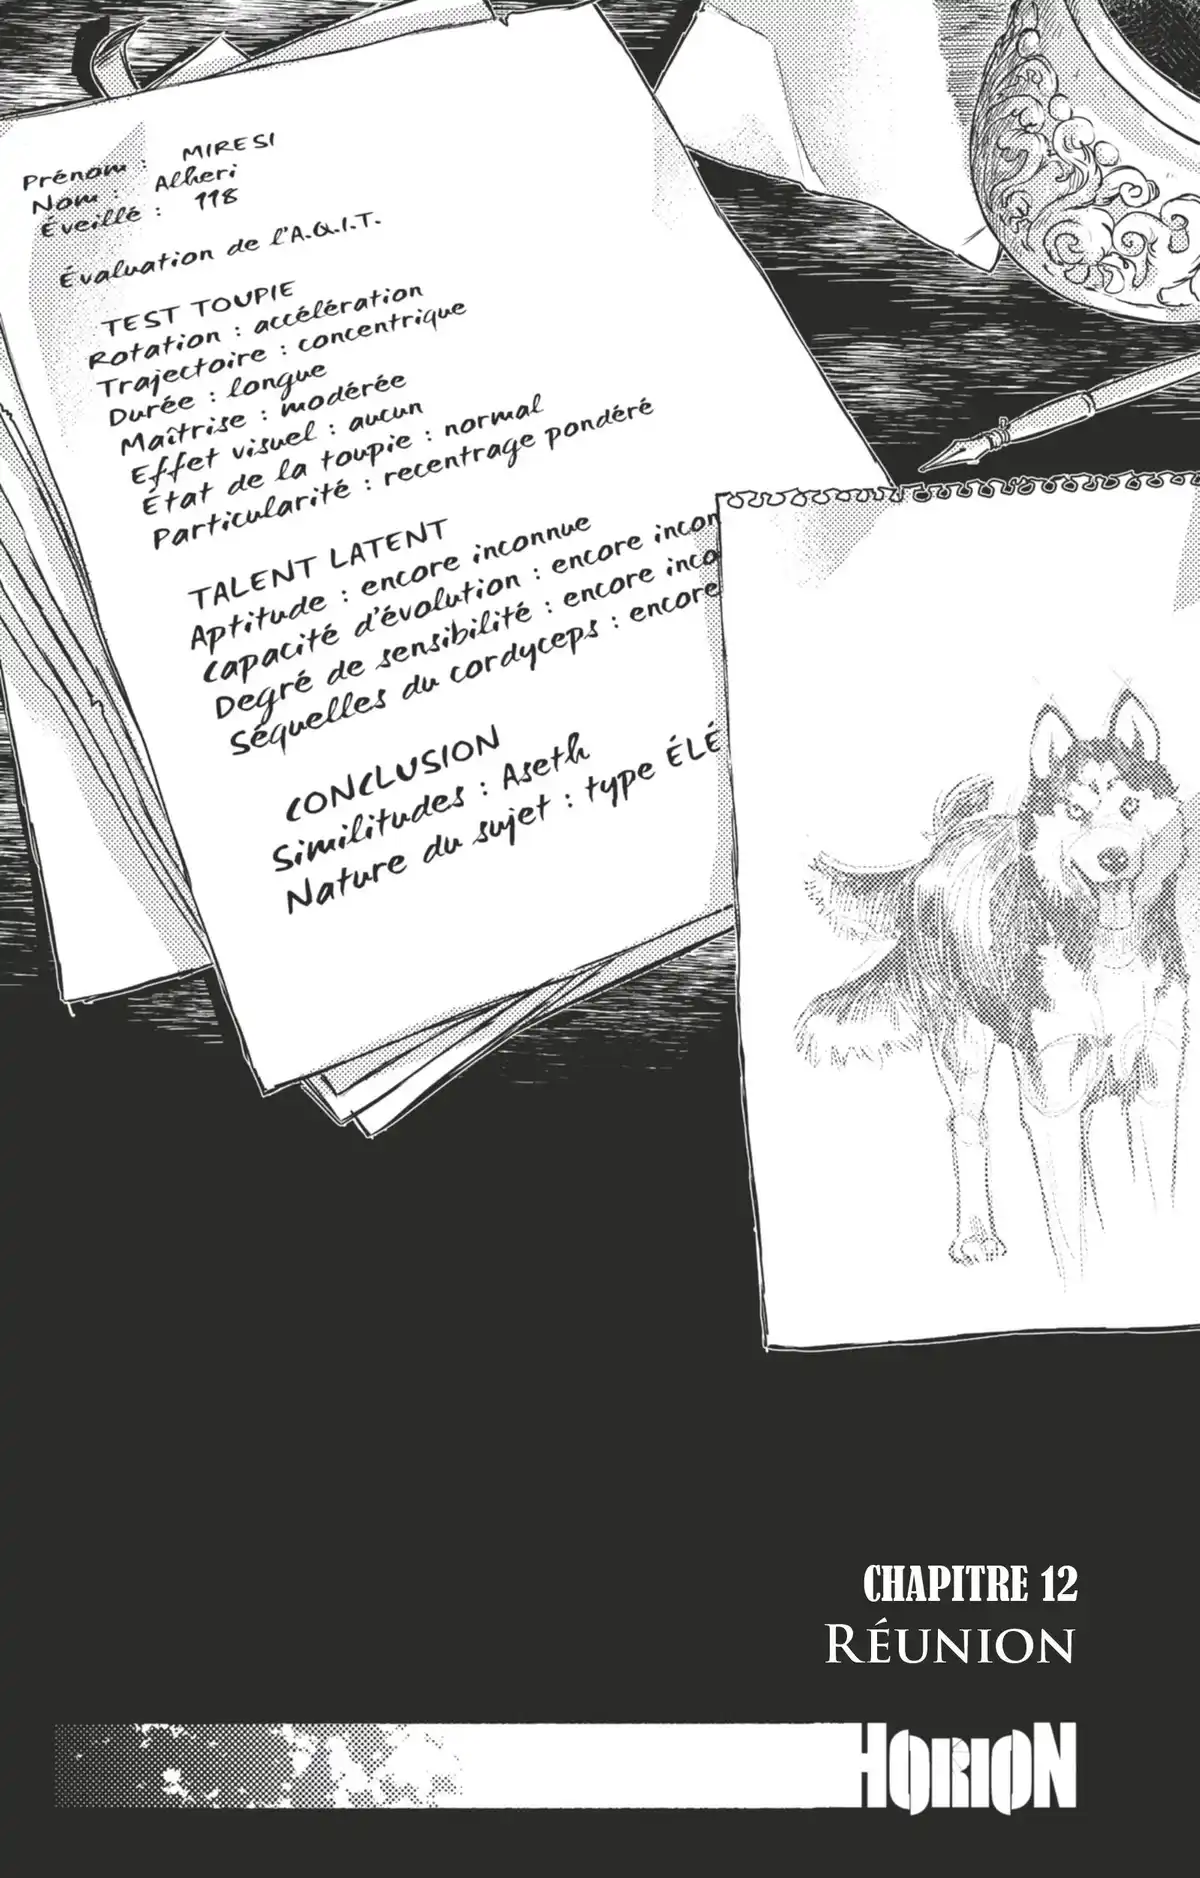 Prénom : MIRESI
Nom : Alheri
Éveillé : 118
Évaluation de l'A.Q.I.T.
TEST TOUPIE
Rotation : accélération
Trajectoire : concentrique
Durée : longue
Maîtrise : modérée
Effet visuel : aucun
État de la toupie : normal
Particularité : recentrage pondéré
TALENT LATENT
Aptitude : encore inconnue
Capacité d'évolution : encore incon
Degré de sensibilité : encore inco
Séquelles du cordyceps : encore
CONCLUSION
Similitudes : Aseth
Nature du sujet : type ÉLÉ
CHAPITRE 12
RÉUNION
HORION